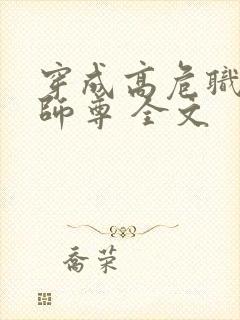 穿成高危職
師尊 全文
喬荣